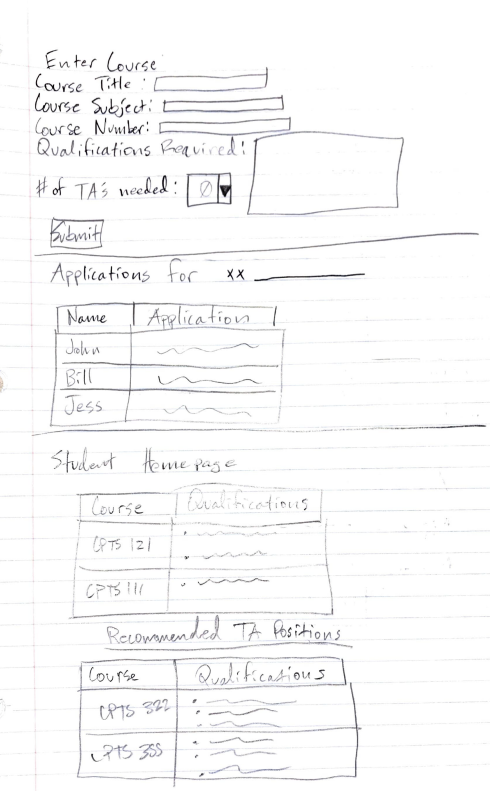 Enter Course
Course Title :
Course Subject:
Course Number:
Qualifications Required:
# of TA's needed: 0
Submit
Applications for xx
Name Application
John
Bill
Jess
Student Homepage
Course Qualifications
CPTS 121
CPTS 111
Recommended TA Positions
Course Qualifications
CPTS 322
CPTS 355